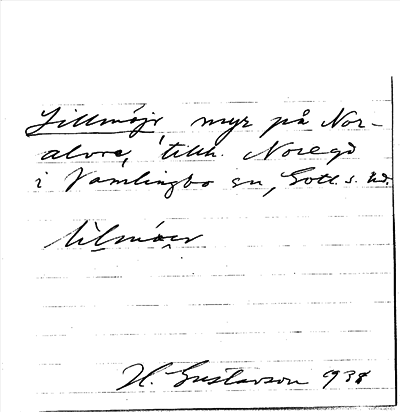 Lillmöjr, myr på Nor-
alvre, tillh. Noregd
i Vamlingbo sn, Gotl. s. hd.
H. Gustavson 1938